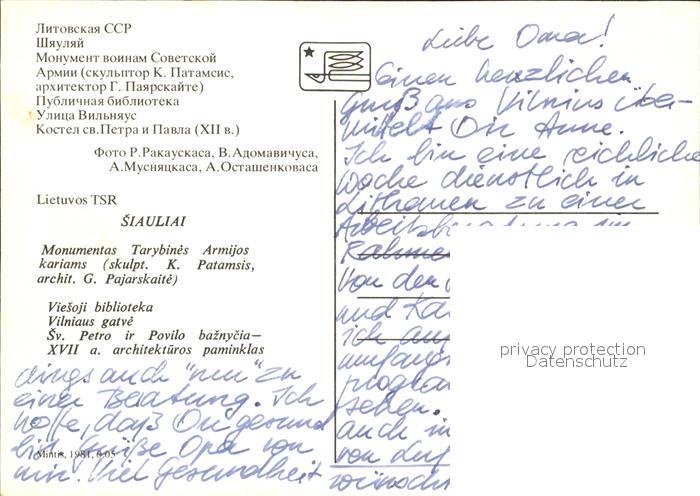 Литовская ССР
Шяуляй
Монумент воинам Советской
Армии (скульптор К. Патамсис,
архитектор Г. Паярскайте)
Публичная библиотека
Улица Вильняус
Костел св.Петра и Павла (XII в.)
Фото Р.Ракаускаса, В.Адомавичуса,
А.Мусняцкаса, А.Осташенковаса
Lietuvos TSR
ŠIAULIAI
Monumentas Tarybinės Armijos
kariams (skulpt. K. Patamsis,
archit. G. Pajarskaitė)
Viešoji biblioteka
Vilniaus gatvė
Šv. Petro ir Povilo bažnyčia—
XVII a. architektūros paminklas
Mintis, 1981, 0.05
Liebe Oma!
Einen herzlichen
Gruß aus Vilnius über-
mittelt Dir Anne.
Ich bin eine reichliche
Woche dienstlich in
Lithauen zu einer
Rahmen
Von den
und
ich
umfangs
progra
sehen.
auch in
von
wünsch
dings auch "nur" zu
einer Beratung. Ich
hoffe, daß Du gesund
bist. Grüße Opa von
mir. Viel Gesundheit
privacy protection
Datenschutz